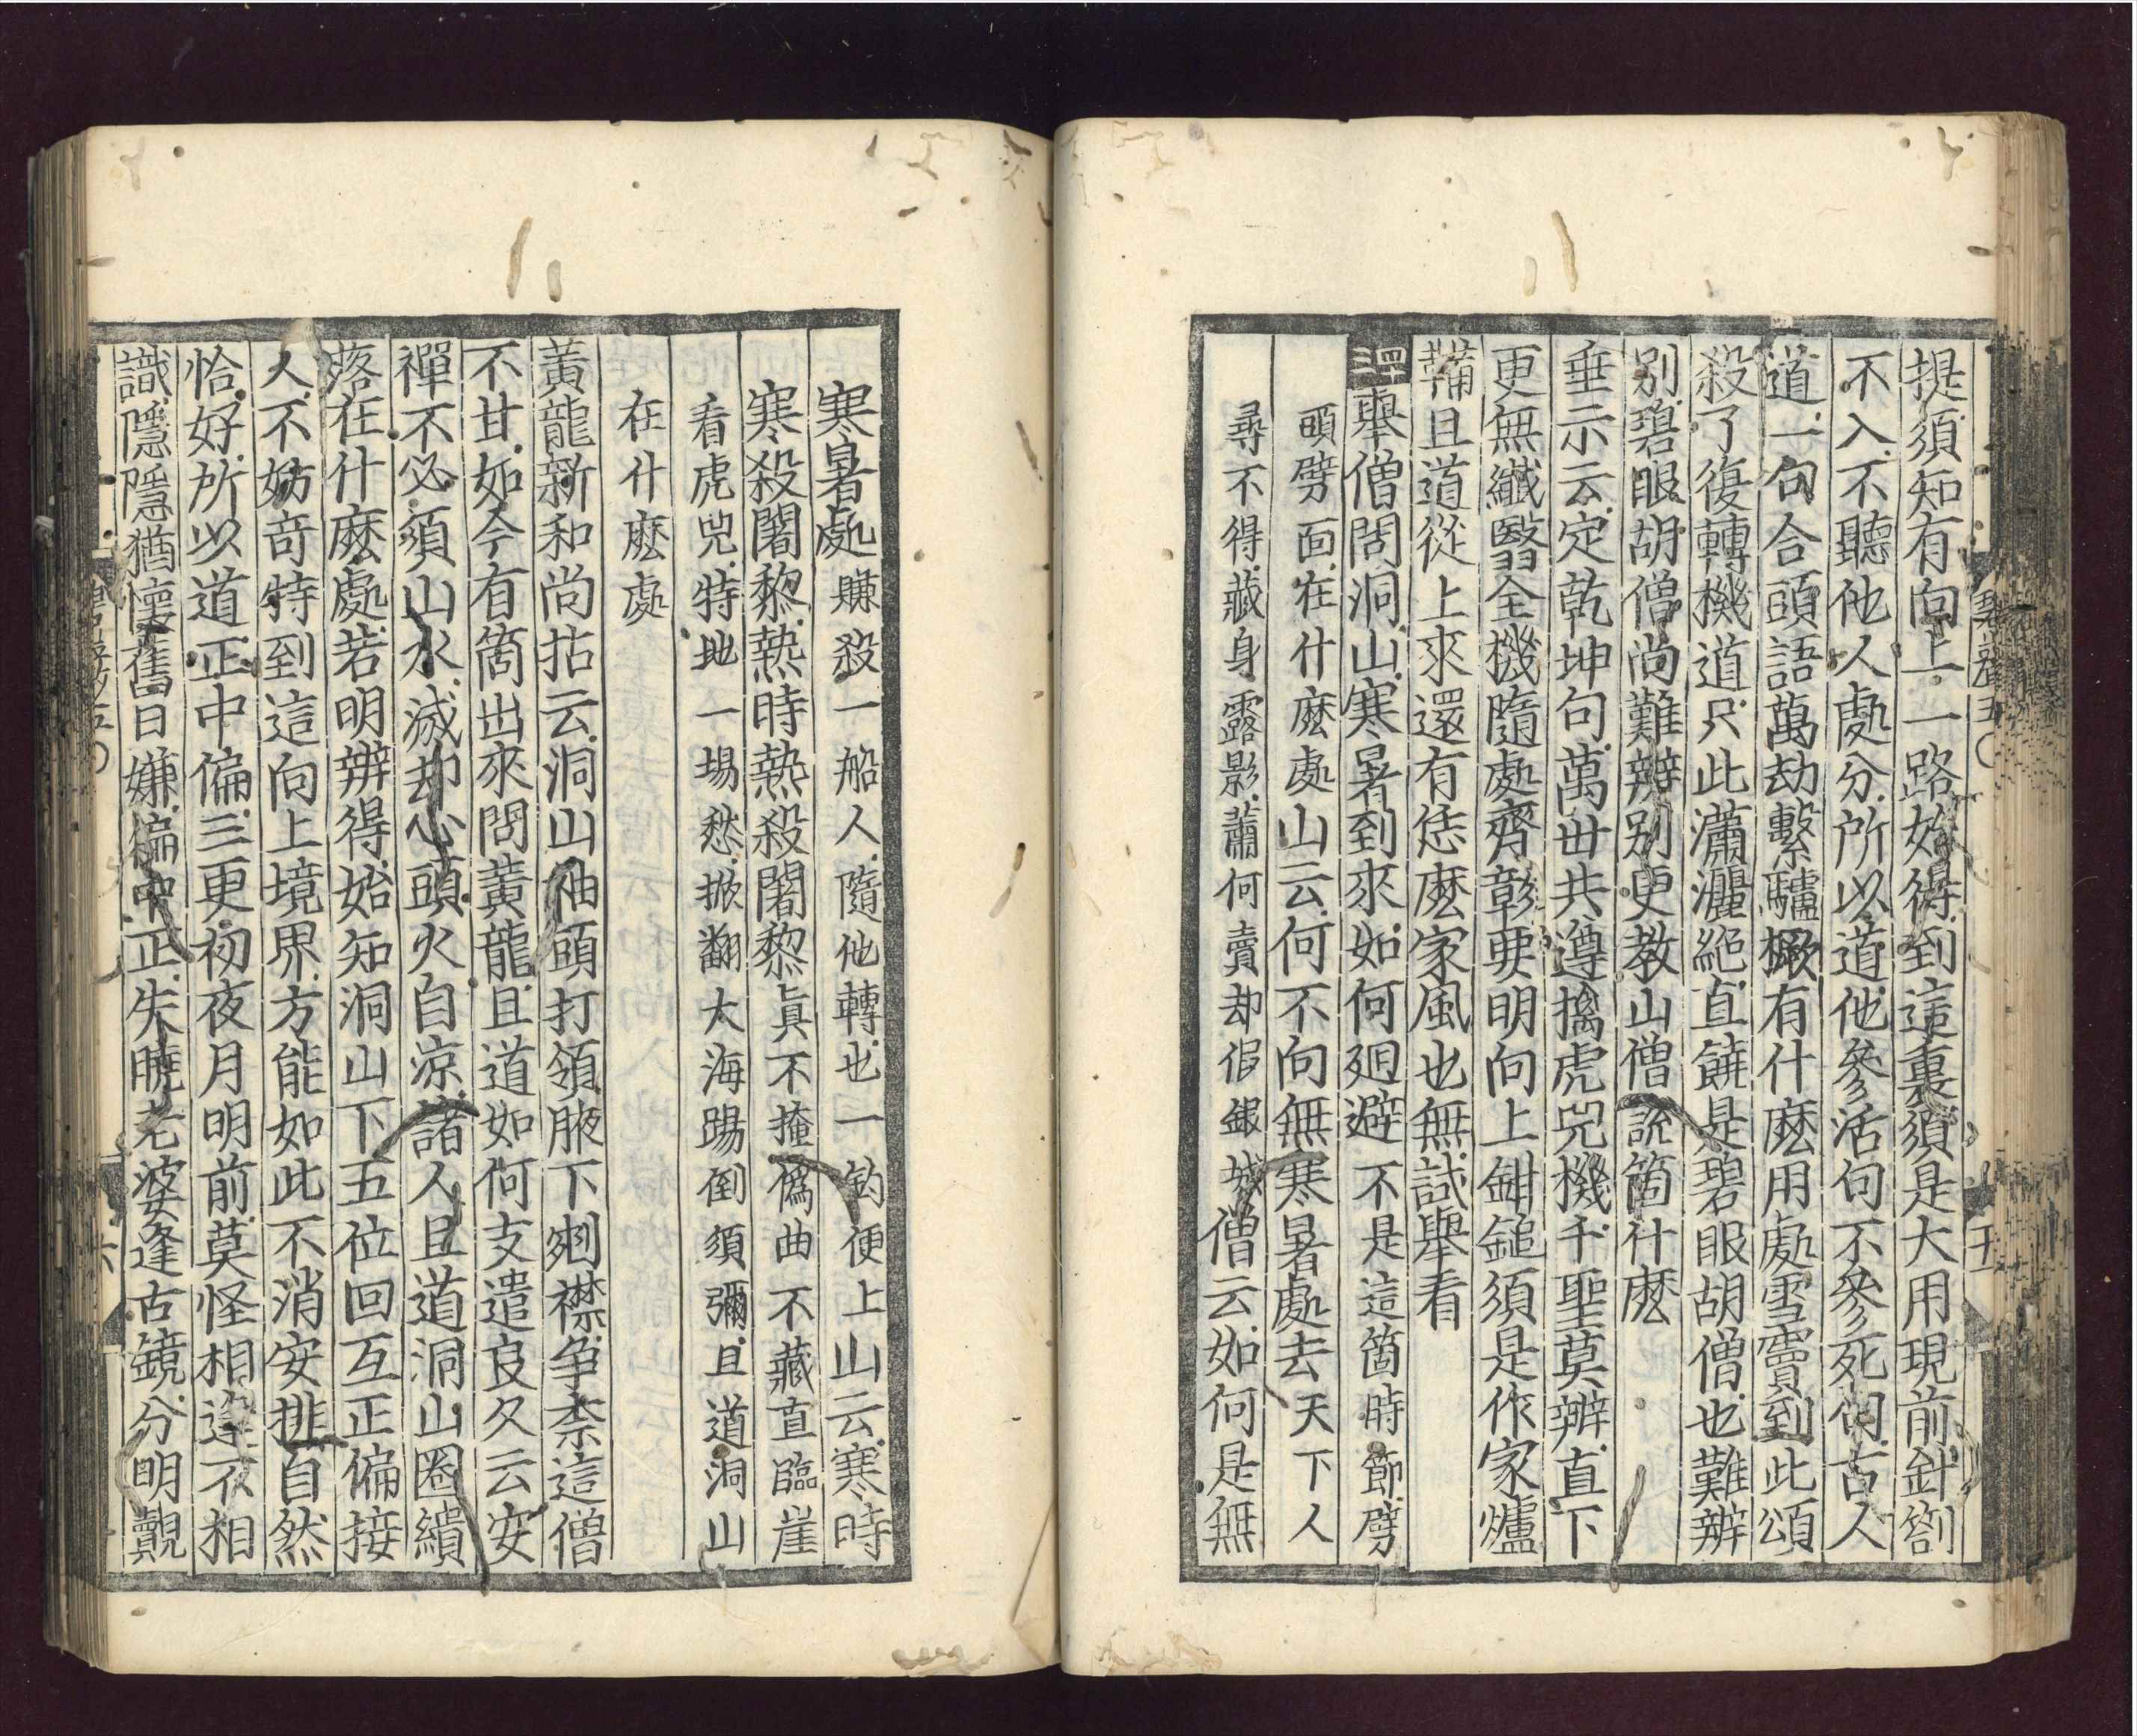 提須知有向上一路始得到這裏須是大用現前針劄
不入不聽他人處分所以道他參活句不參死句古人
道一句合頭語萬劫繫驢橛有什麽用處雪竇到此頌
殺了復轉機道只此瀟灑絕直饒是碧眼胡僧也難辨
別碧眼胡僧尚難辨別更教山僧說箇什麽
垂示云定乾坤句萬世共遵擒虎兕機千聖莫辨直下
更無纖翳全機隨處齊彰要明向上鉗鎚須是作家爐
鞴且道從上來還有恁麽家風也無試舉看
四三舉僧問洞山寒暑到來如何廻避不是這箇時節劈
頭劈面在什麽處山云何不向無寒暑處去天下人
尋不得藏身露影蕭何賣却假銀城僧云如何是無
寒暑處賺殺一船人隨他轉也一鈎便上山云寒時
寒殺闍黎熱時熱殺闍黎真不掩僞曲不藏直臨崖
看虎兕特地一場愁掀翻大海踢倒須彌且道洞山
在什麽處
黃龍新和尚拈云洞山袖頭打領腋下剜襟爭柰這僧
不甘如今有箇出來問黃龍且道如何支遣良久云安
禪不必須山水滅却心頭火自凉諸人且道洞山圈繢
落在什麽處若明辨得始知洞山下五位回互正偏接
人不妨奇特到這向上境界方能如此不消安排自然
恰好所以道正中偏三更初夜月明前莫怪相逢不相
識隱隱猶懷舊日嫌偏中正失曉老婆逢古鏡分明覿